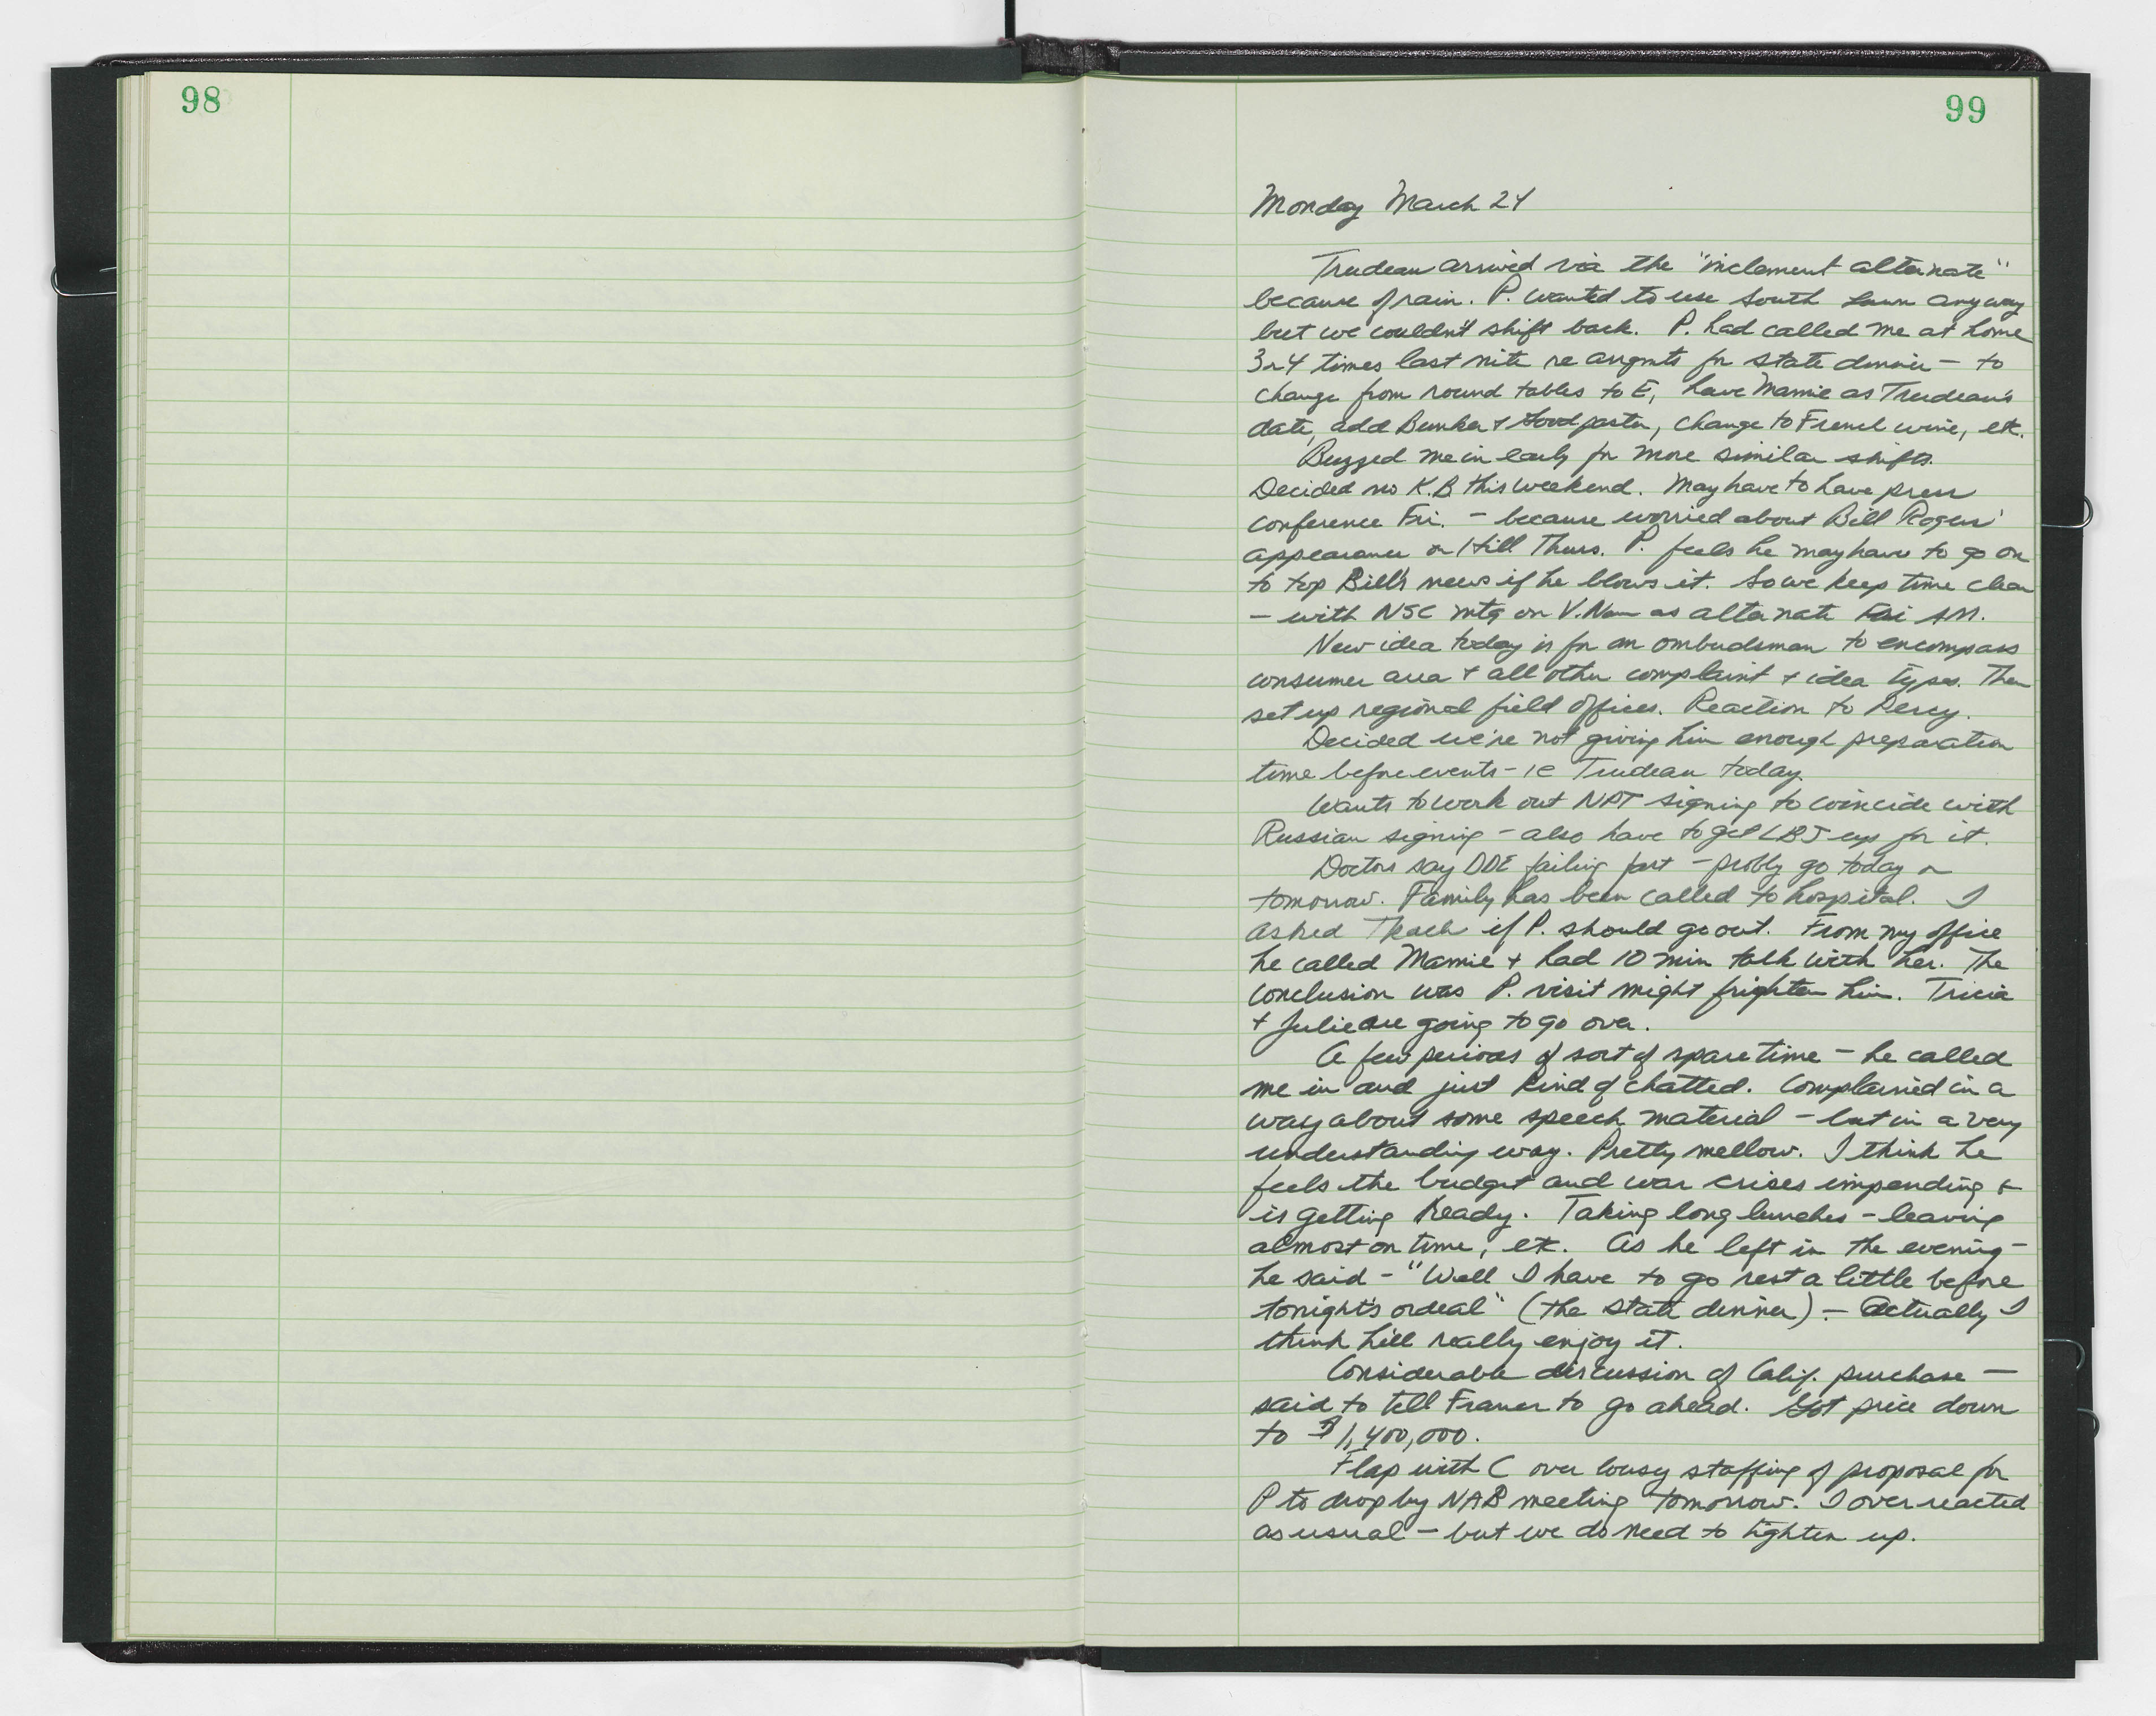 98
99
Monday March 24
Trudeau arrived via the "inclement alternate"
because of rain. P. wanted to use South Lawn anyway
but we couldn't shift back. P. had called me at home
3 or 4 times last nite re arrgmts for state dinner – to
change from round tables to E, have Mamie as Trudeau's
date, add Bunker + Goodpaster, change to French wine, etc.
Buzzed me in early for more similar shifts.
Decided no K.B this weekend. May have to have press
conference Fri. – because worried about Bill Rogers'
appearance on Hill Thurs. P. feels he may have to go on
to top Bill's news if he blows it. So we keep time clear
– with NSC mtg on V.Nam as alternate Fri AM.
New idea today is for an ombudsman to encompass
consumer area + all other complaint + idea types. Then
set up regional field offices. Reaction to Percy.
Decided we're not giving him enough preparation
time before events – ie Trudeau today.
Wants to work out NPT signing to coincide with
Russian signing – also have to get LBJ up for it.
Doctors say DDE failing fast – probly go today or
tomorrow. Family has been called to hospital. I
asked Tkach if P. should go out. From my office
he called Mamie + had 10 min talk with her. The
conclusion was P. visit might frighten him. Tricia
+ Julie are going to go over.
A few periods of sort of spare time – he called
me in and just kind of chatted. Complained in a
way about some speech material – but in a very
understanding way. Pretty mellow. I think he
feels the budget and war crises impending +
is getting ready. Taking long lunches – leaving
almost on time, etc. As he left in the evening –
he said – "Well I have to go rest a little before
tonight's ordeal" (the state dinner) – Actually I
think he'll really enjoy it.
Considerable discussion of Calif. purchase –
said to tell Framer to go ahead. Got price down
to $1,400,000.
Flap with C over lousy staffing of proposal for
P to drop by NAB meeting tomorrow. I over reacted
as usual – but we do need to tighten up.